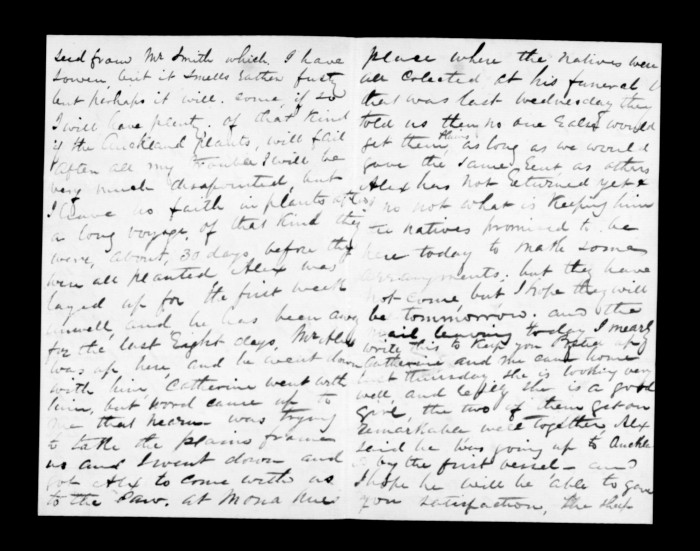 seed from Mr Smith which I have
sowen but it smells rather fusty
but perhaps it will. some, if so
I will have plenty. of that kind
if the Auckland plants, will fail
after all my trouble I will be
very much disapointed, but
I have no faith in plants after
a long voyage. of that kind they
were, about, 30 days before they
were all planted Alex was
layed up for the first week
unwell, and he has been away
for the last Eight days, Mr
was up here, and he went down
with him, Catherine went with
him, but word came up to
me that was trying
to take the plains from
us and I went down and
got Alex to come with us
to the Paw. at
place where the natives were
all colected at his funeral
that was last Wednesday they
told us then no one Ealse would
get them plains as long as we would
gave the same Rent as others
Alex has not returned yet &
I no not what is keeping him
The natives promised to be
here today to make some
arrangments. but they have
not come but I hope they will
be tommorrow. and the
mail leaving today I mearly
write this to keep you
Catherine and me came home
last thursday she is looking very
well, and she is a good
girl, the two of them get on
remarkable well together, Alex
said he was going up to Auckla
by the first vessel - and
I hope he will be able to gave
you satisfaction, the sheep